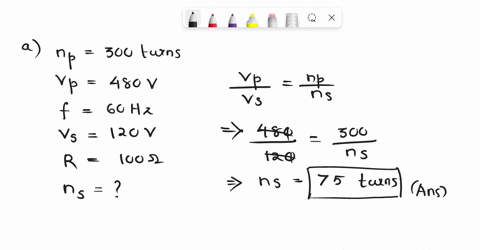 a) np = 300 turns
Vp = 480 V
f = 60 Hz
Vs = 120 V
R = 100 Ω
ns = ?
Vp/Vs = np/ns
⇒ 480/120 = 300/ns
⇒ ns = 75 turns (Ans)